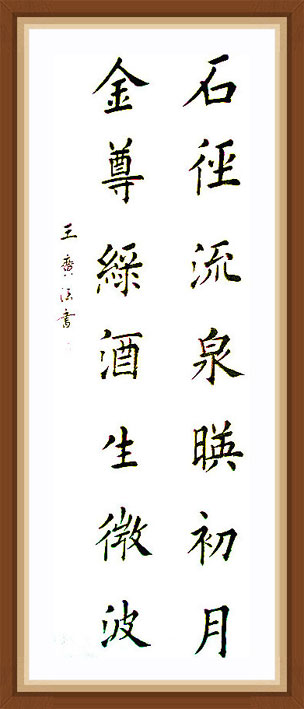 石徑流泉暎初月
金尊綠酒生微波
王廣法書